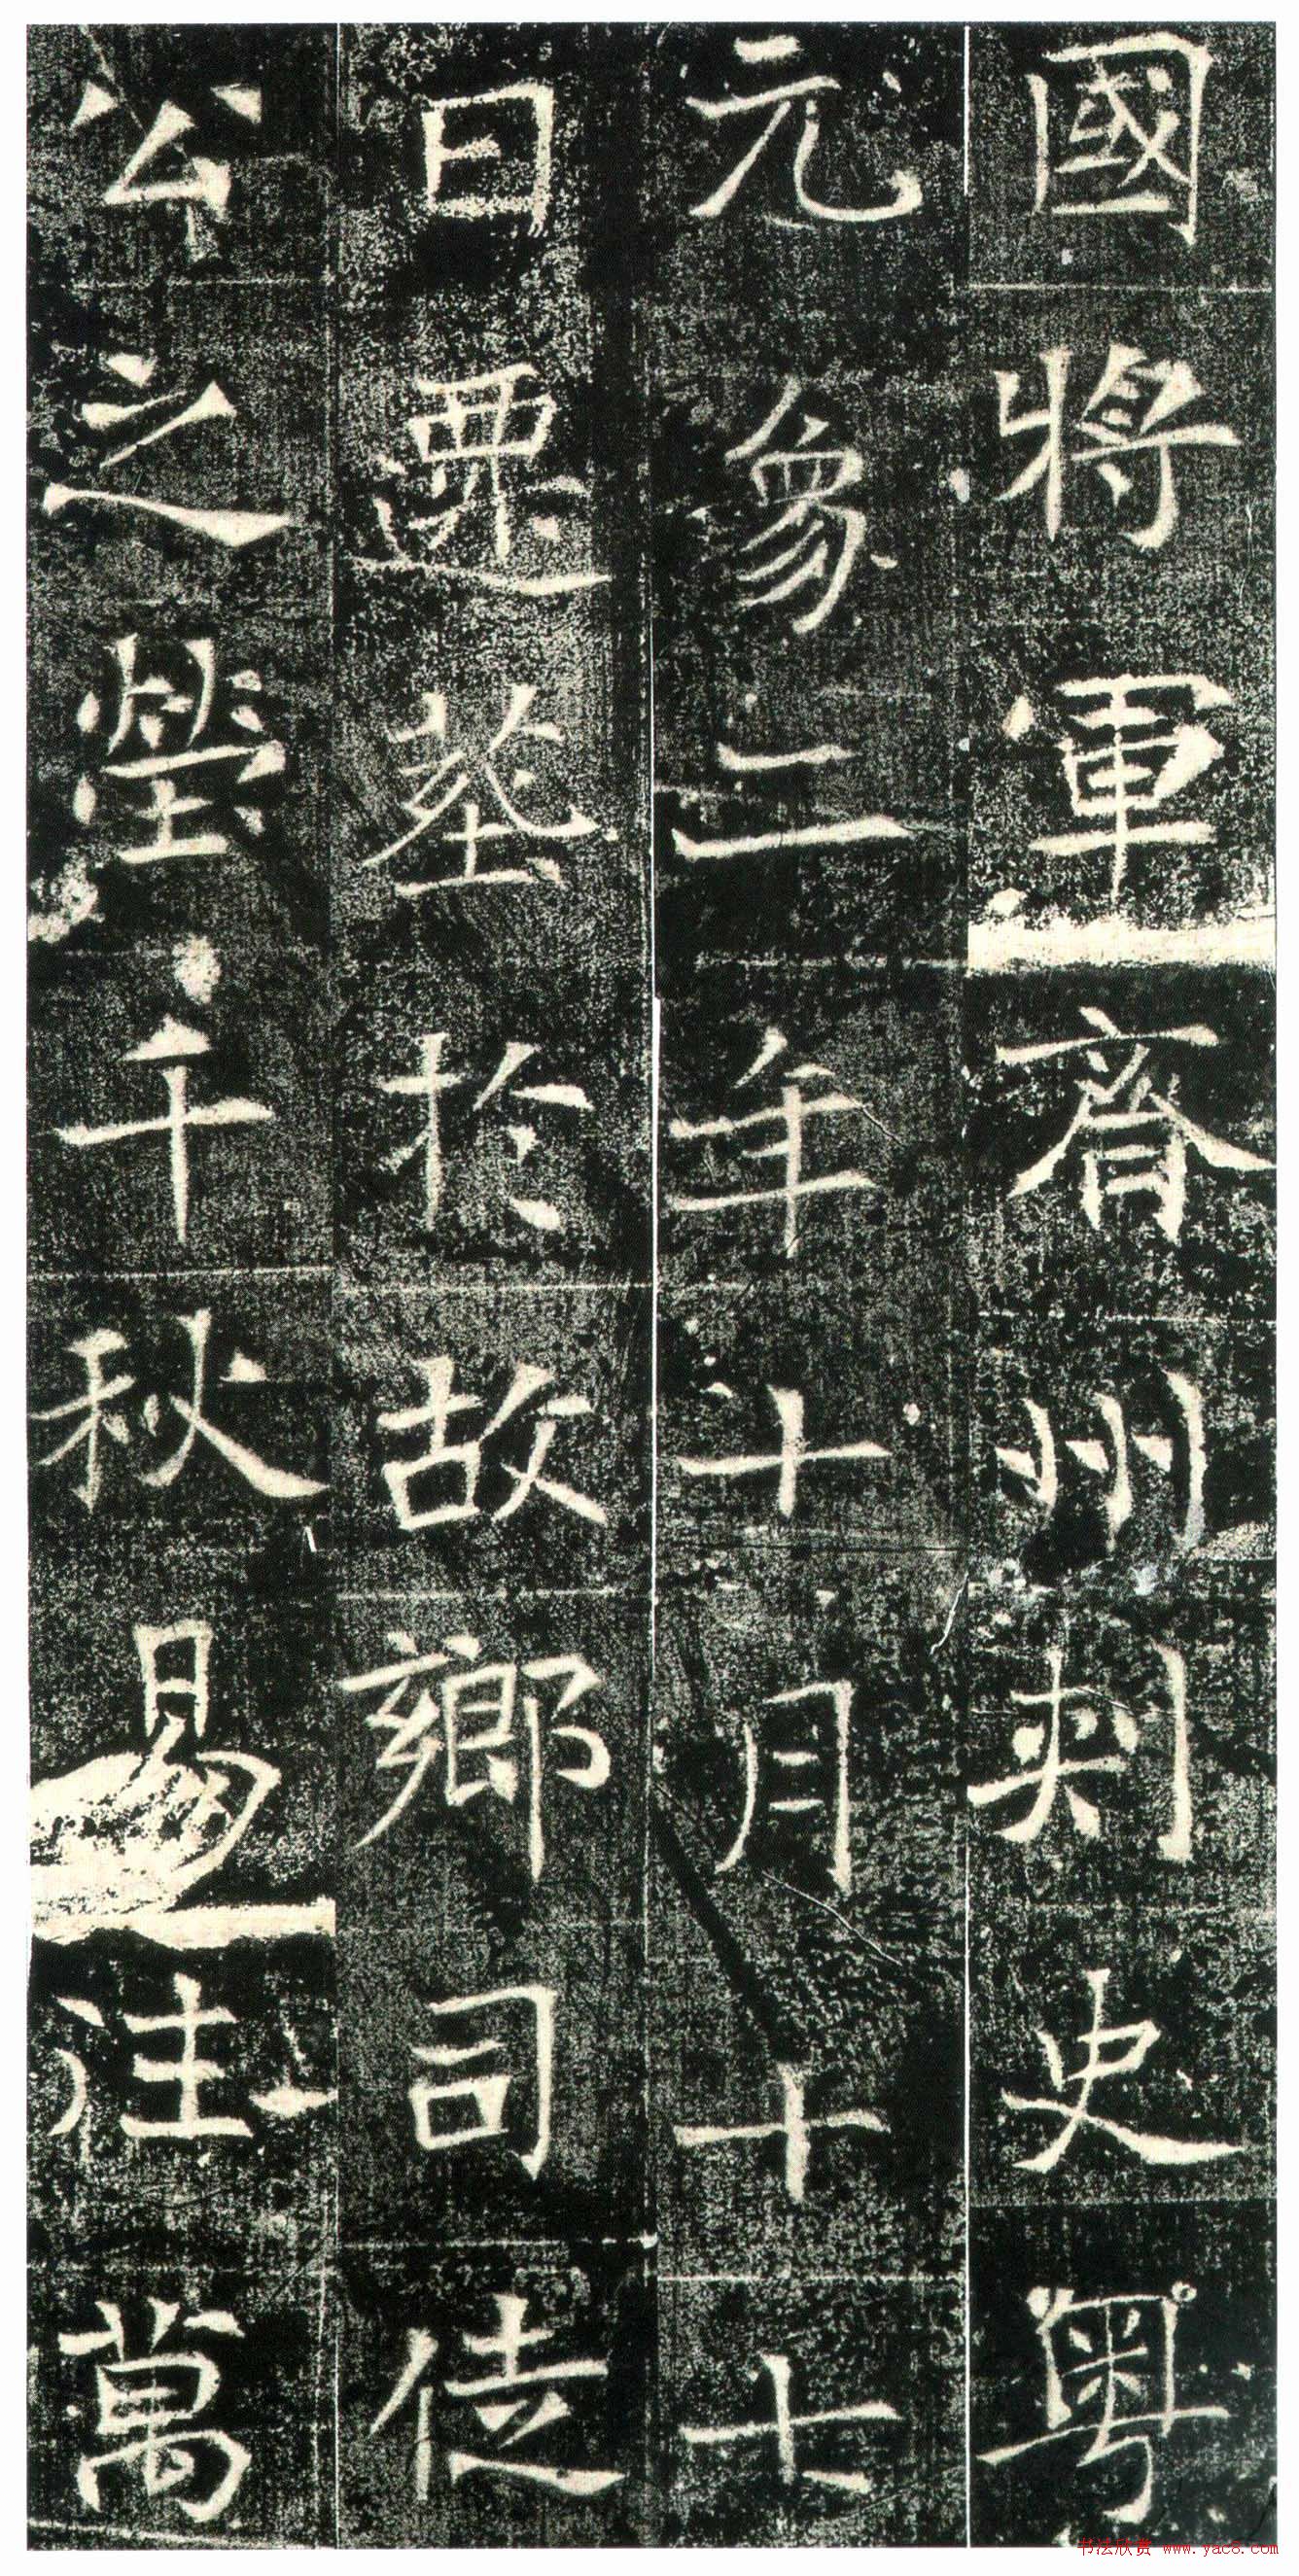 國將軍齊州刺史粵
元象二年十月十七
日遷葬於故鄉司徒
公之塋千秋易往萬
书法欣赏 www.yac8.com